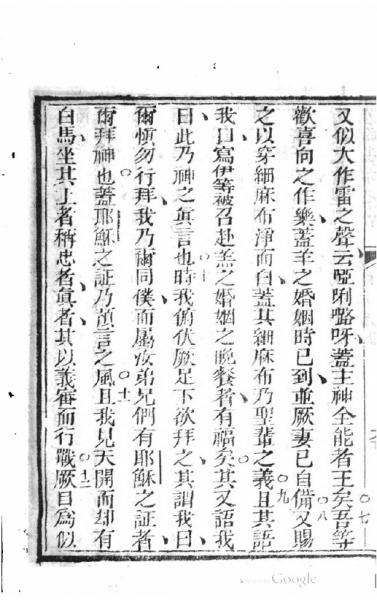 又似大作雷之聲云㗒唎嚕呀蓋主神全能者王矣○七吾等
歡喜向之作樂蓋羊之婚姻時已到並厥妻已自備○八又賜
之以穿細麻布淨而白蓋其細麻布乃聖輩之義○九且其語
我曰寫伊等被召赴羔之婚姻之晚餐者有福矣其又語我
曰此乃神之眞言也○時我俯伏厥足下欲拜之其謂我曰
爾愼勿行拜我乃爾同僕而屬汝弟兄們有耶穌之証者
爾拜神也○蓋耶穌之証乃預言之風○十一且我見天開而却有
白馬坐其上者稱忠者眞者其以義審而行戰○十二厥目爲似
Google